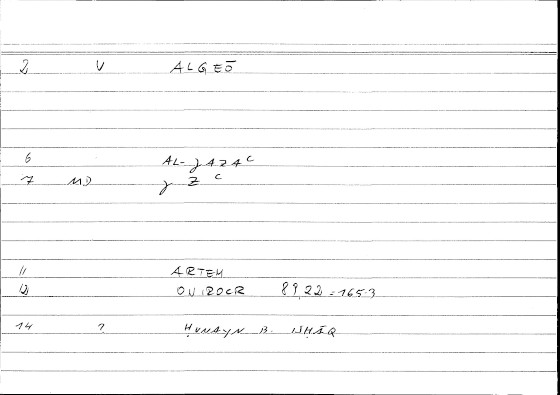 2 V ALGEŌ
6 AL-ǦAZAᶜ
7 MD ǧ Z ᶜ
11 ARTEM
12 OVIZOCR 89,22 = 165.3
14 ? ḤUNAYN B. ISḤĀQ